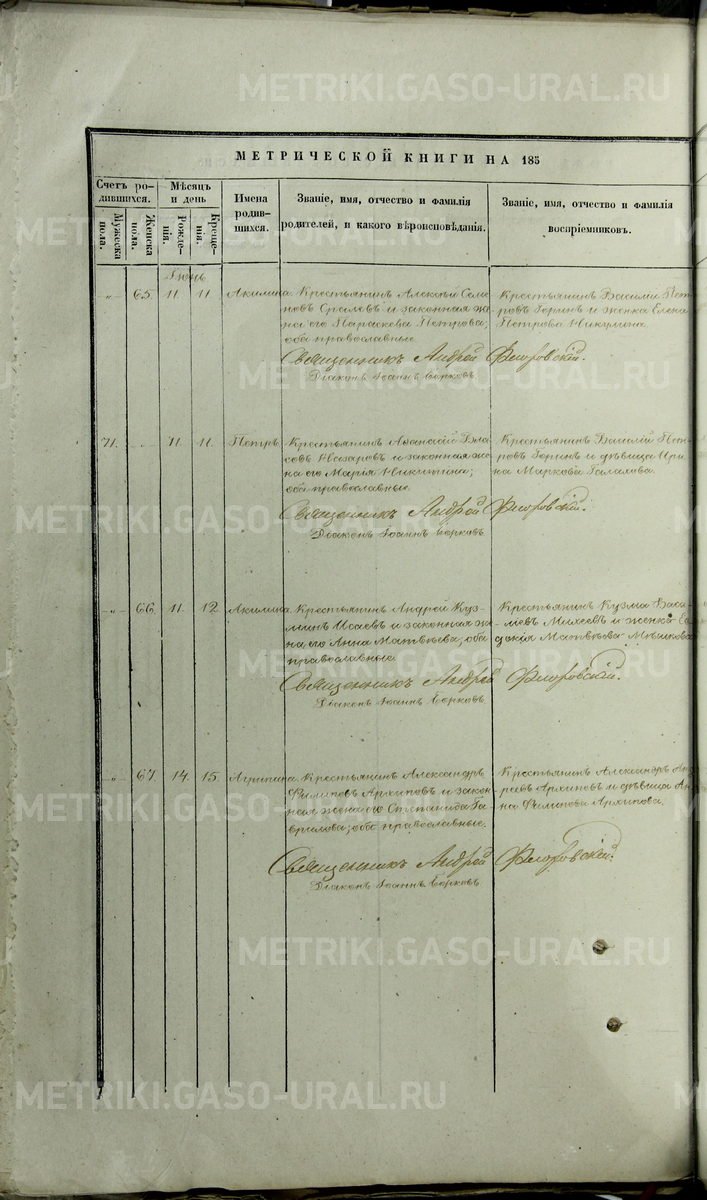 METRIKI.GASO-URAL.RU
МЕТРИЧЕСКОЙ КНИГИ НА 185
Счетъ родившихся.
Мужеска пола.
Женска пола.
Мѣсяцъ и день
Рожденія.
Крещенія.
Имена родившихся.
Званіе, имя, отчество и фамилія
родителей, и какого вѣроисповѣданія.
Званіе, имя, отчество и фамилія
воспріемниковъ.
Іюнь
„ 65. 11. 11. Акилина. Крестьянинъ Алексѣй Семе
новъ и законная же
на его Параскева Петрова;
оба православные.
Крестьянинъ Василій Пет
ровъ и женка Елена
Петрова Никулина.
Священникъ Андрей Флоровскій.
Діаконъ Іоаннъ
71. „ 11. 11. Петръ. Крестьянинъ Аѳанасій Вла
совъ Назаровъ и законная же
на его Марія Никитина;
оба православные.
Крестьянинъ Василій Пет
ровъ и дѣвица Ири
на Маркова
Священникъ Андрей Флоровскій.
Діаконъ Іоаннъ
„ 66. 11. 12. Акилина. Крестьянинъ Андрей Куз
минъ Исаевъ и законная же
на его Анна Матвѣева; оба
православные.
Крестьянинъ Кузма Васи
льевъ Михеевъ и женка Ев
докія Матвѣева
Священникъ Андрей Флоровскій.
Діаконъ Іоаннъ
„ 67. 14. 15. Агрипина. Крестьянинъ Александръ
Филиповъ Архиповъ и закон
ная жена его Степанида Га
врилова; оба православные.
Крестьянинъ Александръ Анд
реевъ Архиповъ и дѣвица Ан
на Филипова Архипова.
Священникъ Андрей Флоровскій.
Діаконъ Іоаннъ